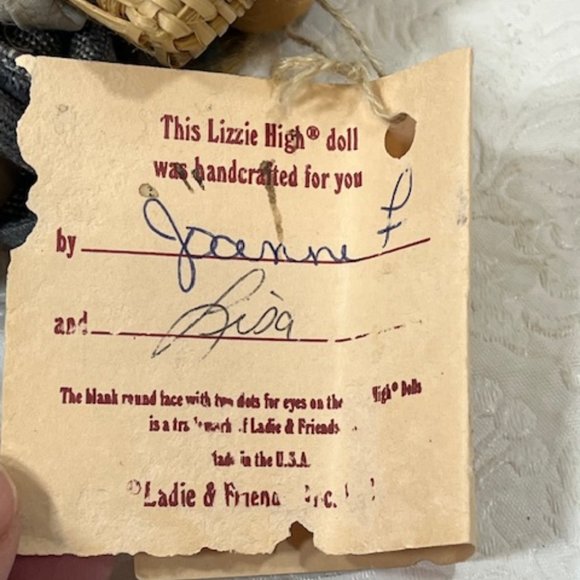 This Lizzie High® doll
was handcrafted for you
by Joanne F
and Lisa
The blank round face with two dots for eyes on the High® Dolls
is a of Ladie & Friends
in the U.S.A.
©Ladie &